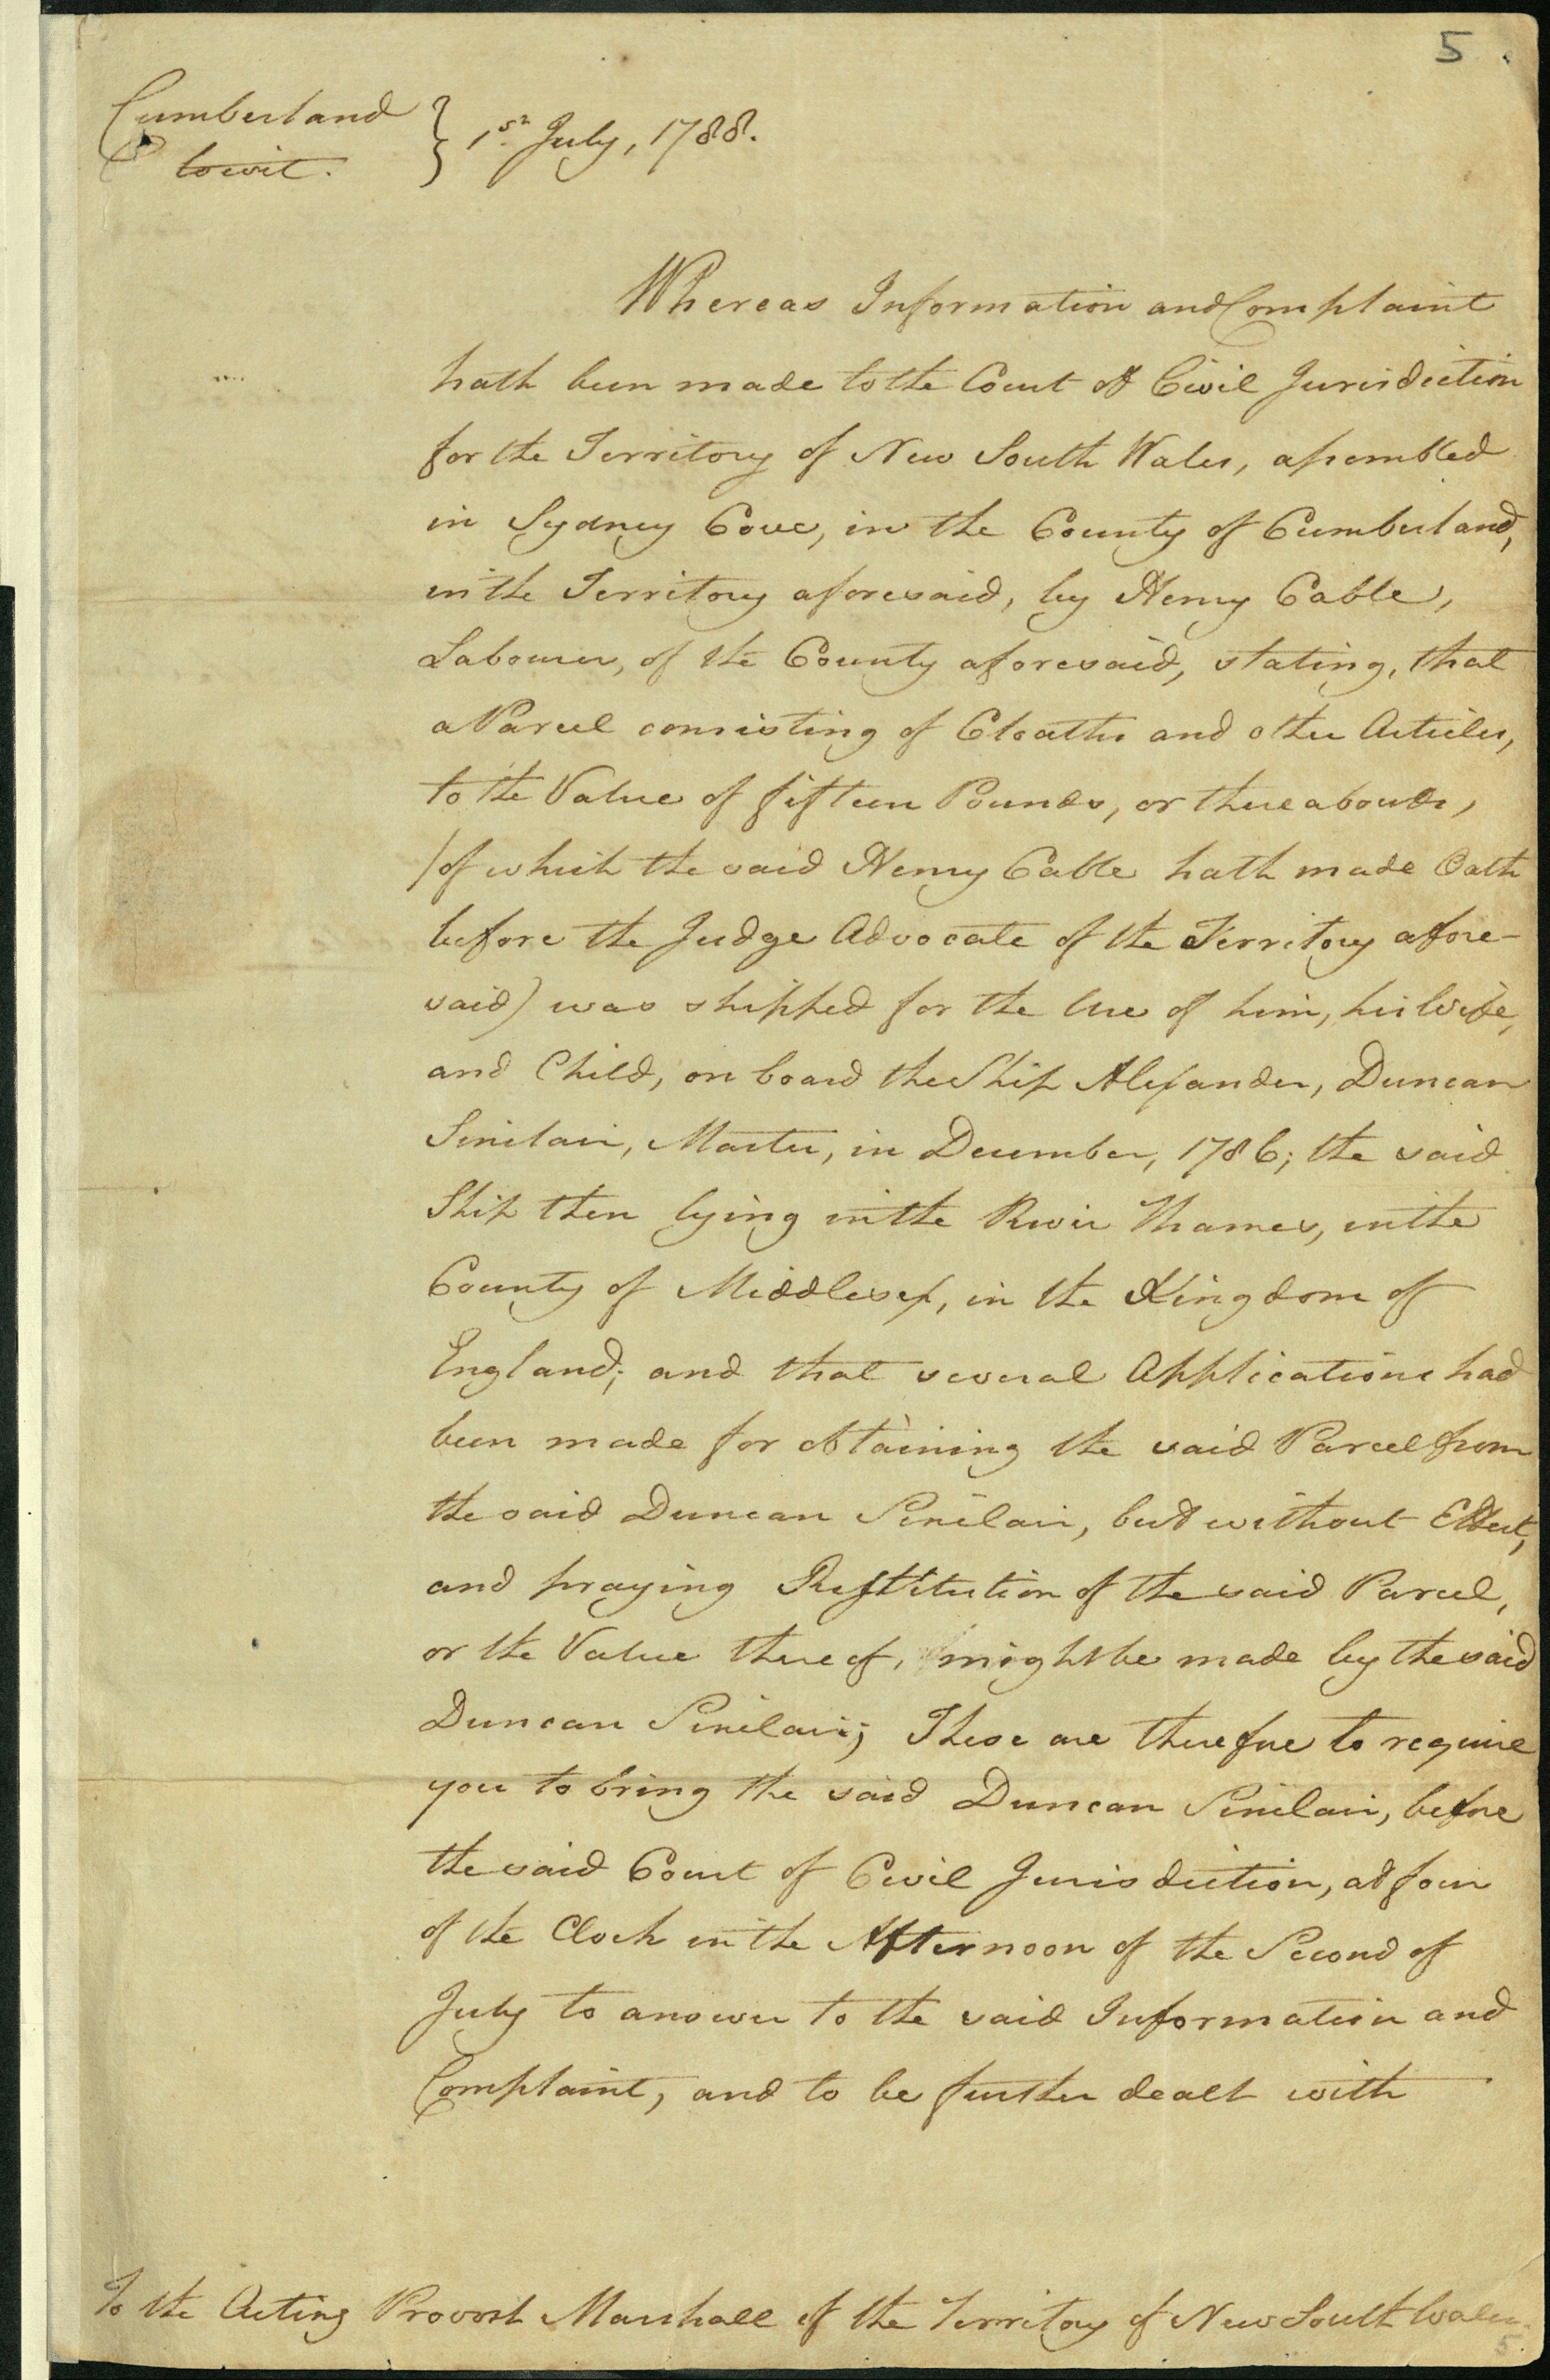 5
Cumberland } 1st July, 1788.
towit.
Whereas Information and Complaint
hath been made to the Court of Civil Jurisdiction
for the Territory of New South Wales, assembled
in Sydney Cove, in the County of Cumberland,
in the Territory aforesaid, by Henry Cable,
Labourer, of the County aforesaid, stating, that
a Parcel consisting of Cloaths and other Articles,
to the Value of fifteen Pounds, or thereabouts,
(of which the said Henry Cable hath made Oath
before the Judge Advocate of the Territory afore-
said) was shipped for the Use of him, his Wife,
and Child, on board the Ship Alexander, Duncan
Sinclair, Master, in December, 1786; the said
Ship then lying in the River Thames, in the
County of Middlesex, in the Kingdom of
England; and that several Applications had
been made for obtaining the said Parcel from
the said Duncan Sinclair, but without Effect,
and praying Restitution of the said Parcel,
or the Value thereof, might be made by the said
Duncan Sinclair; These are therefore to require
you to bring the said Duncan Sinclair, before
the said Court of Civil Jurisdiction, at four
of the Clock in the Afternoon of the Second of
July to answer to the said Information and
Complaint, and to be further dealt with
To the Acting Provost Marshall of the Territory of New South Wales.
5.